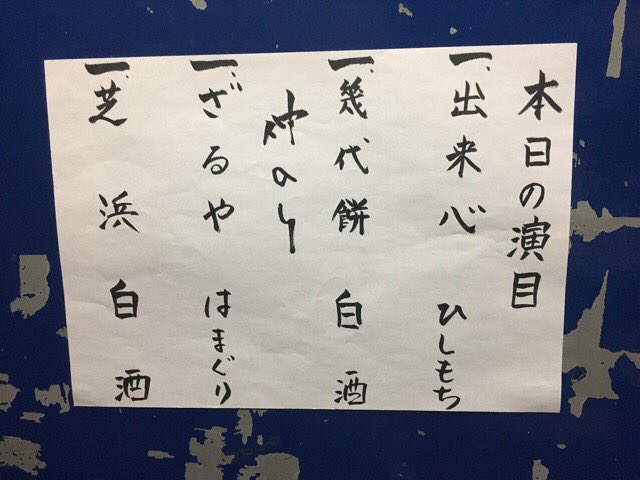 本日の演目
一、出来心 ひしもち
一、幾代餅 白酒
仲の入り
一、ざるや はまぐり
一、芝浜 白酒